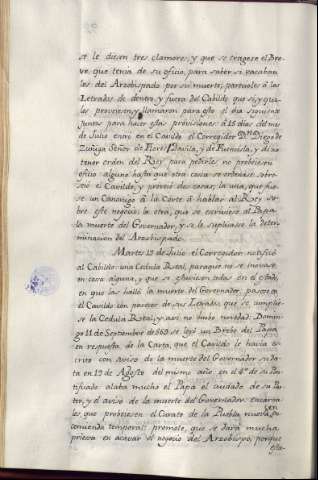 se le diesen tres clamores, y que se tragese el Bre-
ve que tenia de su oficio, para saber si vacaban
las del Arzobispado por su muerte; pareciolo á los
Letrados de dentro, y fuera del Cabildo que si, y qua-
les proviesen, y llamaron para esto el dia siguiente
Juntos para hacer estas provisiones á 15 dias del mes
de Julio entró en el Cavildo el Corregidor Dn. Diego de
Zuñiga Señor de Flores Davila, y de Fuenvila, y dijo
tener orden del Rey para pedirles no probeiesen
oficio alguno hasta que otra cosa se ordenase sobre-
seió el Cavildo, y proveió dos cosas; la una, que fue-
se un Canonigo á la Corte á hablar al Rey so-
bre este negocio; la otra, que se escriviese al Papa
la muerte del Governador, y se le suplicase la deter-
minacion del Arzobispado.
Martes 19 de Julio el Corregidor notificó
al Cabildo una Cedula Real, para que no se innova-
se en cosa alguna, y que se estuviesen en el estado,
en que las halló la muerte del Governador, pareció
al Cavildo con parecer de sus Letrados que se cumplie-
se la Cedula Real, y asi no hubo novedad. Domin-
go 11 de Septiembre de 569 se leyó un Brebe del Papa
en respuesta de la Carta, que el Cavildo le havia es-
crito con aviso de la muerte del Governador su da-
ta en 19 de Agosto del mismo año, en el 4º de su Pon-
tificado alaba mucho el Papa el cuidado de su Pas-
tor, y el aviso de la muerte del Governador encarga
les, que probeiesen el Curato de la Puebla nueva, en
encomienda temporal; promete, que se dará mucha
prieesa en acavar el negocio del Arzobispo, porque
esta-